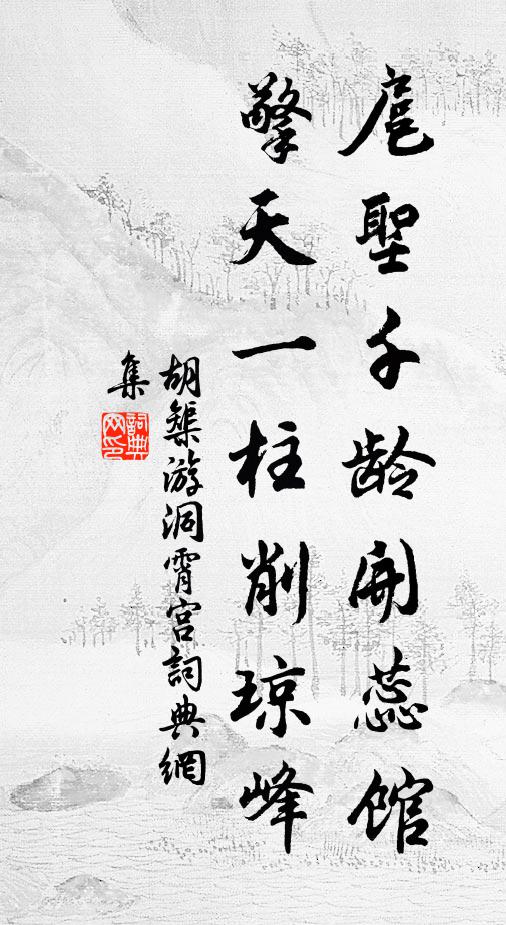 扈聖千齡開蕊館
擎天一柱削琼峰
胡榘游洞霄宫詞典網
集
詞典
网印